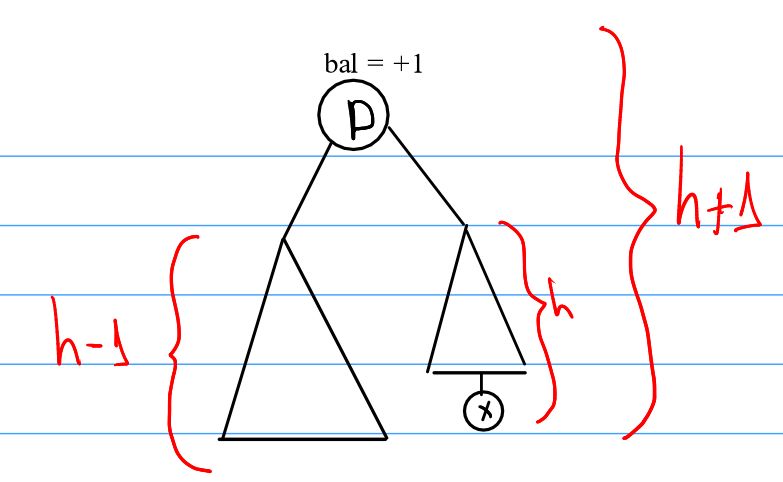 bal = +1
p
h+1
h-1
h
x